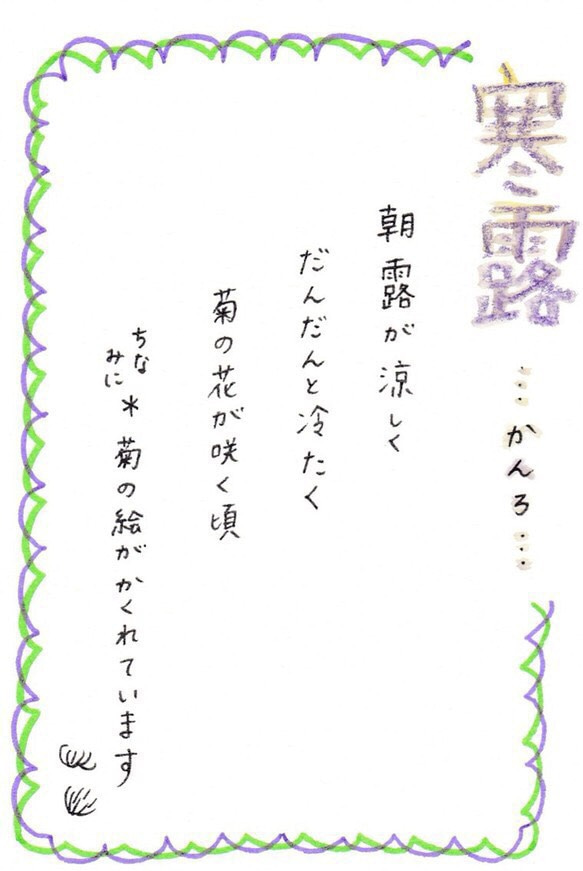 寒露
…かんろ…
朝露が涼しく
だんだんと冷たく
菊の花が咲く頃
ちなみに
*菊の絵がかくれています